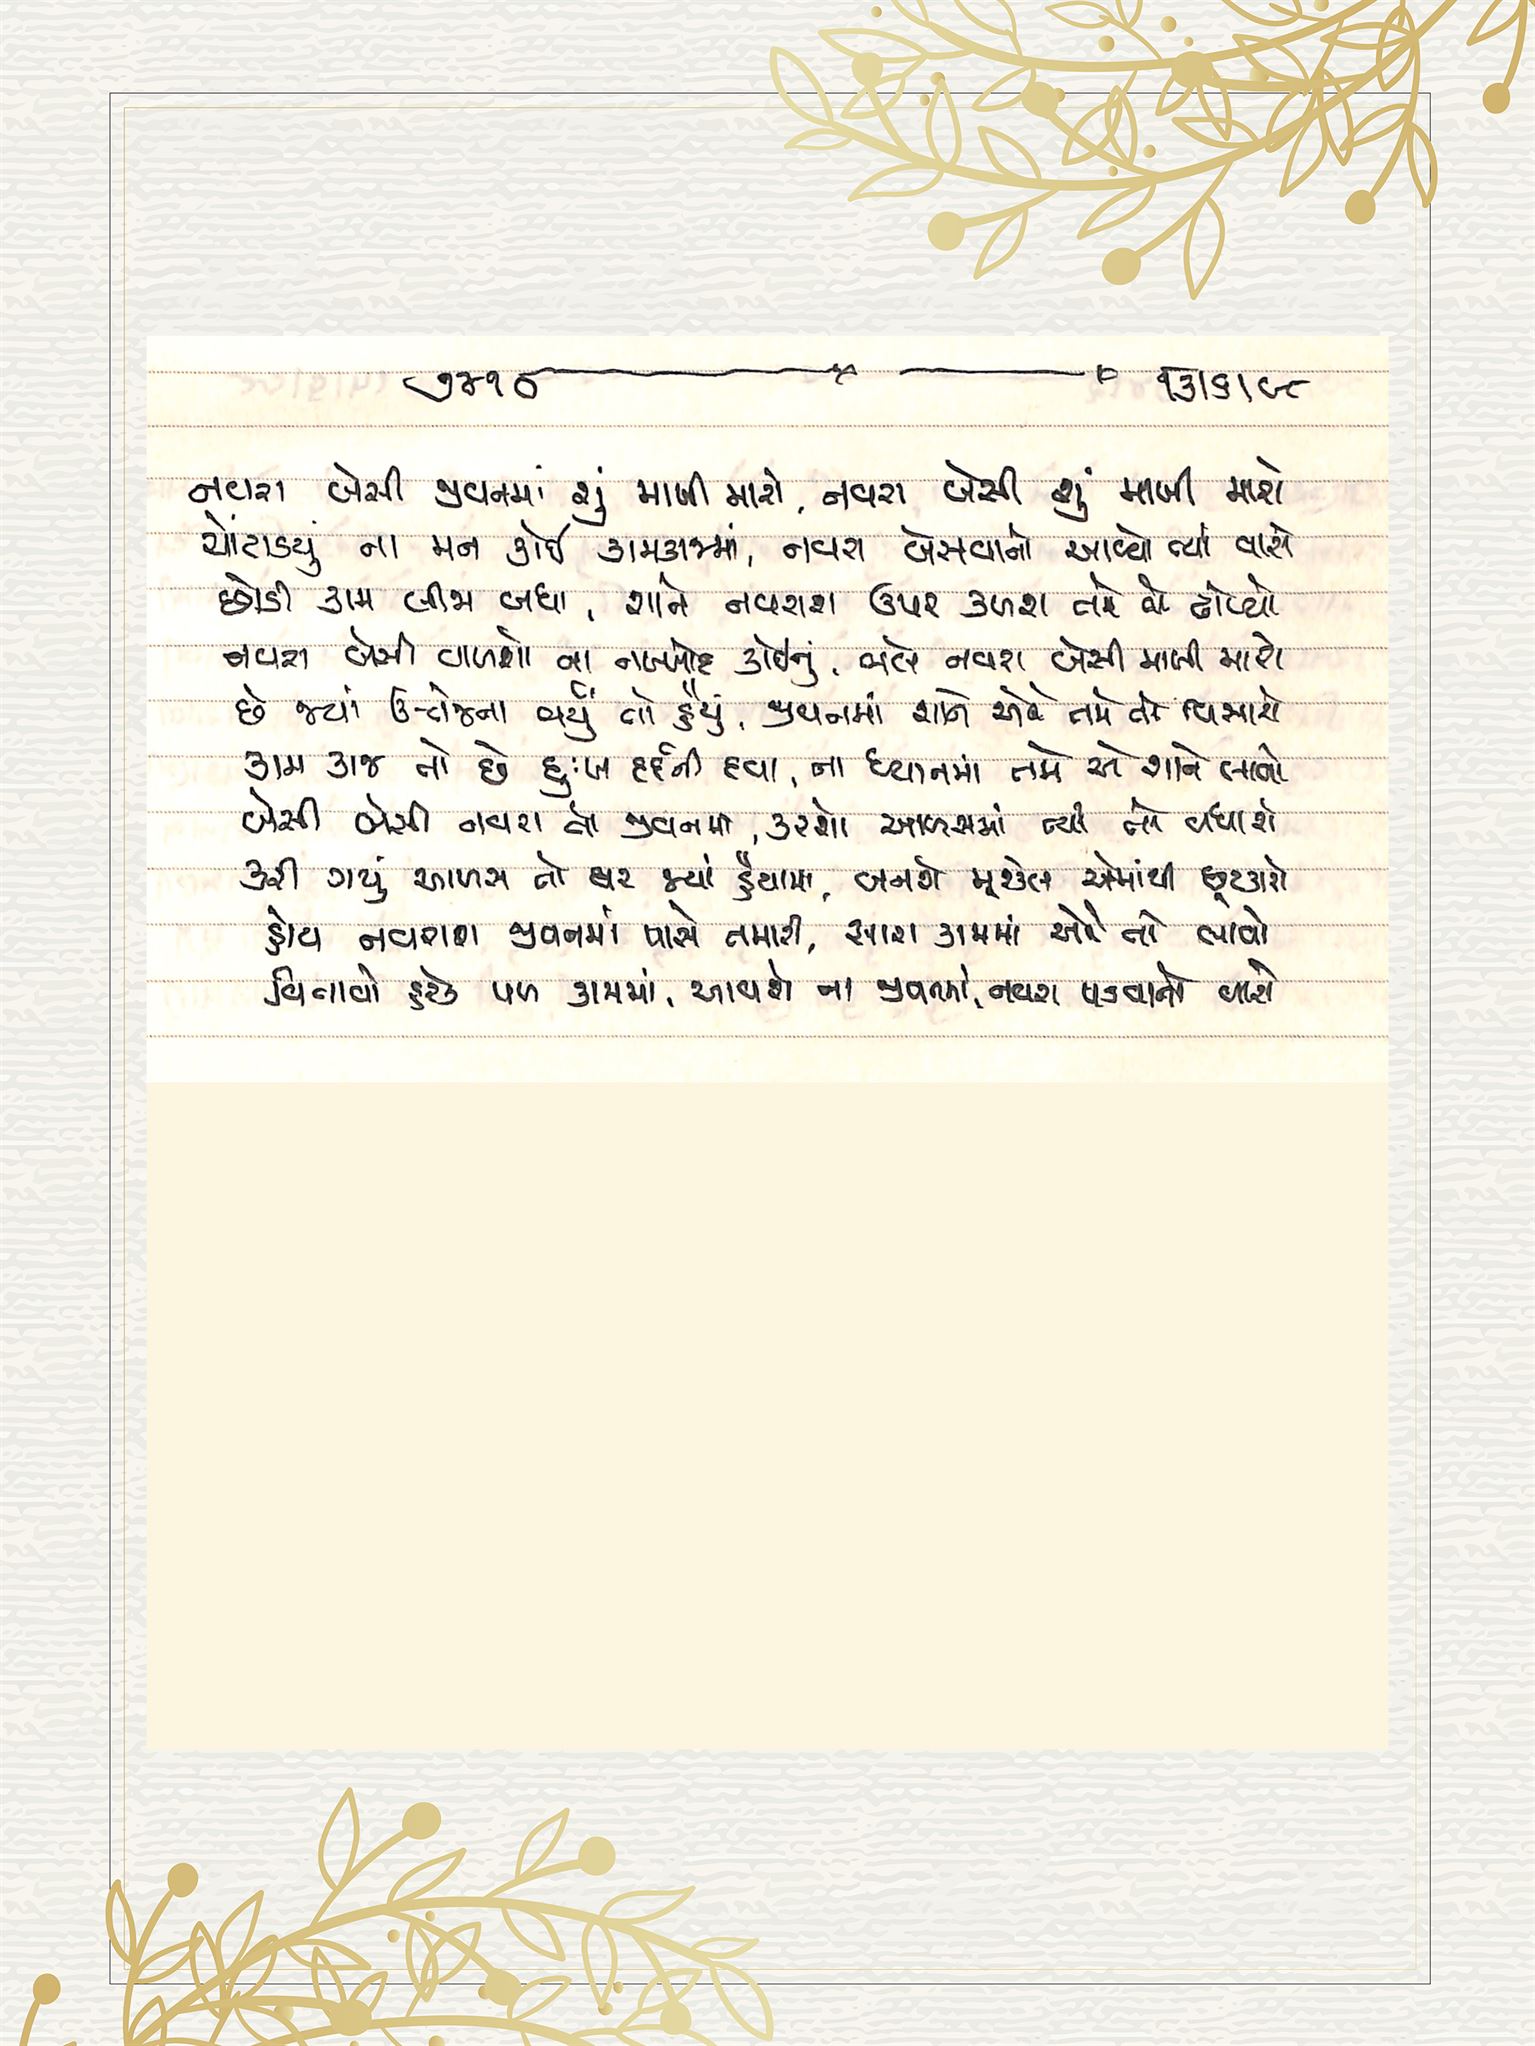 ૭૪૧૦ ૧૩/૬/૯૮
નવરા બેસી જીવનમાં શું માખી મારો, નવરા બેસી શું માખી મારો
ચોંટાડયું ના મન કોઈ કામકાજમાં, નવરા બેસવાનો આવ્યો ત્યાં વારો
છોડી કામ બીજા બધા, શાને નવરાશ ઉપર કળશ તમે તો ઢોળ્યો
નવરા બેસી વાળશો ના નખ્ખોદ કોઈનું, ભલે નવરા બેસી માખી મારો
છે જ્યાં ઉત્તેજના ભર્યું તો હૈયું, જીવનમાં શાને એને તમે તો વિસારો
કામ કાજ તો છે દુઃખ દર્દની દવા, ના ધ્યાનમાં તમે એ શાને લાવો
બેસી બેસી નવરા તો જીવનમાં, કરશો આળસમાં ત્યાં તો વધારો
કરી ગયું આળસ તો ઘર જ્યાં હૈયામાં, બનશે મૂશ્કેલ એમાંથી છૂટકારો
હોય નવરાશ જીવનમાં પાસે તમારી, સારા કામમાં એને તો લાવો
વિતાવો હરેક પળ કામમાં, આવશે ના જીવનમાં, નવરા પડવાનો વારો